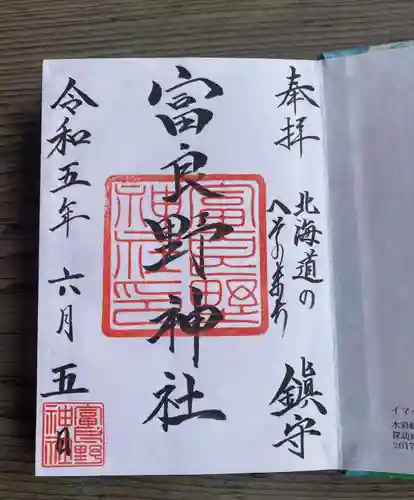 奉拝
北海道の
へそのまち
鎮守
富良野神社
富良野
神社印
令和五年 六月 五日
富良野
神社
イマ
水彩
探訪
2017